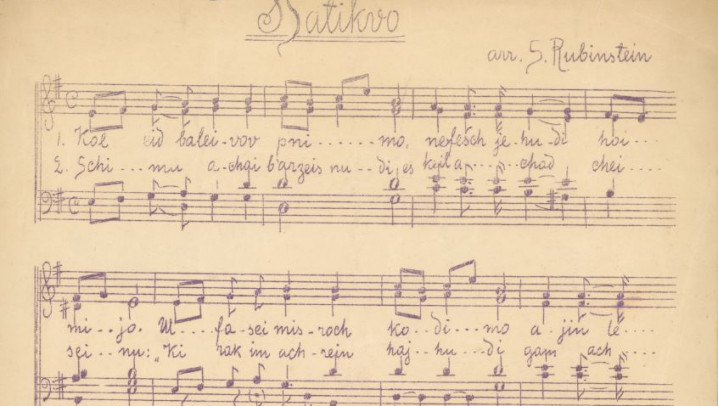 Hatikvo
arr. S. Rubinstein
1. Kol eid balei-vov pni......mo, nefesch je-hu-di hoi...
2. Schi...mu a-chai b'arzeis nu--di, es keila....chad chei....
mi--jo. Ul....fa-sei mis-roch ko--di--mo a-jin le....
sei--nu: "Ki rak im ach-rein haj--hu--di gam ach....